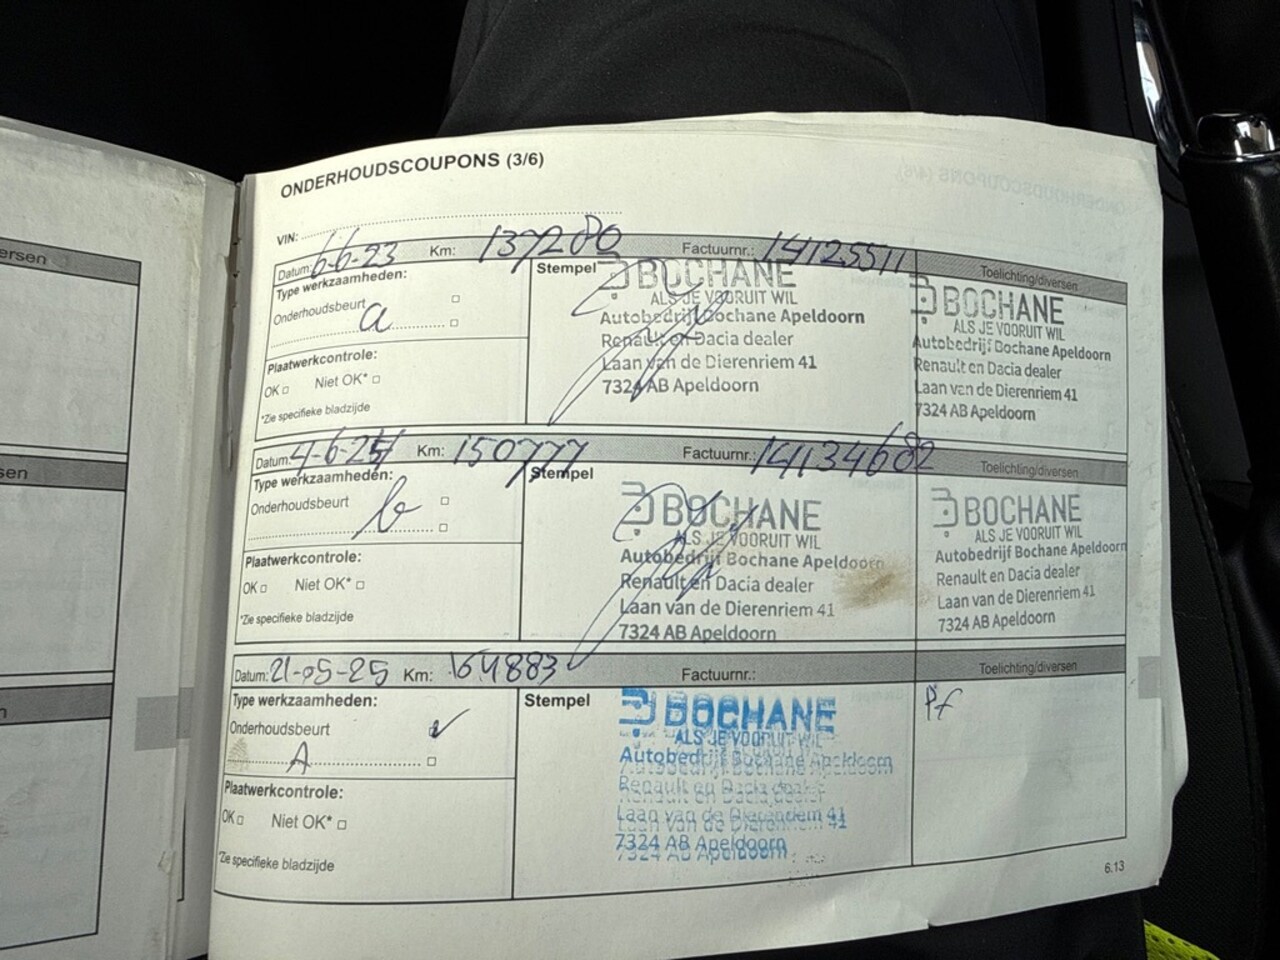 ONDERHOUDSCOUPONS (3/6)
VIN:
Datum: 6-6-23 Km: 137280 Factuurnr.: 14125511 Toelichting/diversen
Type werkzaamheden:
Onderhoudsbeurt
a
Plaatwerkcontrole:
OK Niet OK*
*Zie specifieke bladzijde
Stempel
BOCHANE
ALS JE VOORUIT WIL
Autobedrijf Bochane Apeldoorn
Renault en Dacia dealer
Laan van de Dierenriem 41
7324 AB Apeldoorn
BOCHANE
ALS JE VOORUIT WIL
Autobedrijf Bochane Apeldoorn
Renault en Dacia dealer
Laan van de Dierenriem 41
7324 AB Apeldoorn
Datum: Km: 150777 Factuurnr.: 14134682 Toelichting/diversen
Type werkzaamheden:
Onderhoudsbeurt
b
Plaatwerkcontrole:
OK Niet OK*
*Zie specifieke bladzijde
Stempel
BOCHANE
ALS JE VOORUIT WIL
Autobedrijf Bochane Apeldoorn
Renault en Dacia dealer
Laan van de Dierenriem 41
7324 AB Apeldoorn
BOCHANE
ALS JE VOORUIT WIL
Autobedrijf Bochane Apeldoorn
Renault en Dacia dealer
Laan van de Dierenriem 41
7324 AB Apeldoorn
Datum: 21-05-25 Km: 164883 Factuurnr.: Toelichting/diversen
Type werkzaamheden:
Onderhoudsbeurt
A
Plaatwerkcontrole:
OK Niet OK*
*Zie specifieke bladzijde
Stempel
BOCHANE
ALS JE VOORUIT WIL
Autobedrijf Bochane Apeldoorn
Renault en Dacia dealer
Laan van de Dierenriem 41
7324 AB Apeldoorn
Pf
6.13